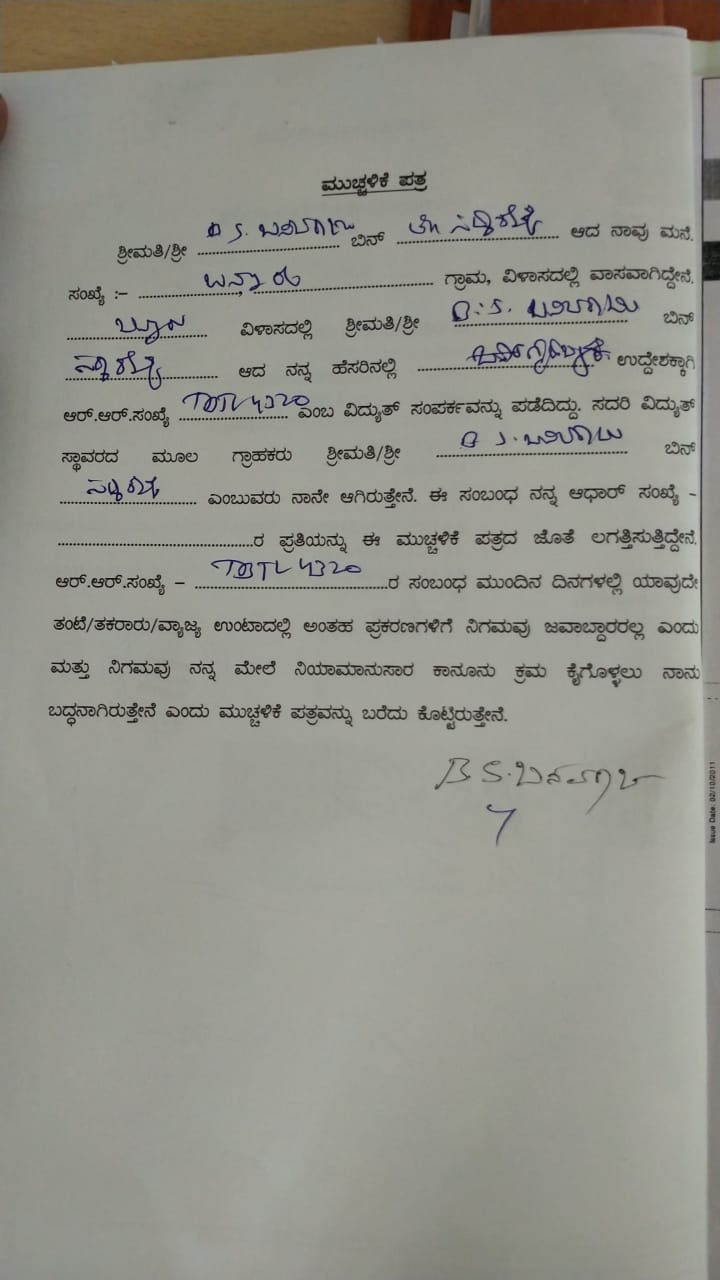 ಮುಚ್ಚಳಿಕೆ ಪತ್ರ
ಶ್ರೀಮತಿ/ಶ್ರೀ B S. ಬಸವರಾಜು ಬಿನ್ ಆದ ನಾವು ಮನೆ.
ಸಂಖ್ಯೆ :- ಗ್ರಾಮ, ವಿಳಾಸದಲ್ಲಿ ವಾಸವಾಗಿದ್ದೇನೆ.
ವಿಳಾಸದಲ್ಲಿ ಶ್ರೀಮತಿ/ಶ್ರೀ B. S. ಬಸವರಾಜು ಬಿನ್
ಆದ ನನ್ನ ಹೆಸರಿನಲ್ಲಿ ಉದ್ದೇಶಕ್ಕಾಗಿ
ಆರ್.ಆರ್.ಸಂಖ್ಯೆ TBTL4320 ಎಂಬ ವಿದ್ಯುತ್ ಸಂಪರ್ಕವನ್ನು ಪಡೆದಿದ್ದು. ಸದರಿ ವಿದ್ಯುತ್
ಸ್ಥಾವರದ ಮೂಲ ಗ್ರಾಹಕರು ಶ್ರೀಮತಿ/ಶ್ರೀ B S. ಬಸವರಾಜು ಬಿನ್
ಎಂಬುವರು ನಾನೇ ಆಗಿರುತ್ತೇನೆ. ಈ ಸಂಬಂಧ ನನ್ನ ಆಧಾರ್ ಸಂಖ್ಯೆ –
ರ ಪ್ರತಿಯನ್ನು ಈ ಮುಚ್ಚಳಿಕೆ ಪತ್ರದ ಜೊತೆ ಲಗತ್ತಿಸುತ್ತಿದ್ದೇನೆ.
ಆರ್.ಆರ್.ಸಂಖ್ಯೆ – TBTL4320 ರ ಸಂಬಂಧ ಮುಂದಿನ ದಿನಗಳಲ್ಲಿ ಯಾವುದೇ
ತಂಟೆ/ತಕರಾರು/ವ್ಯಾಜ್ಯ ಉಂಟಾದಲ್ಲಿ ಅಂತಹ ಪ್ರಕರಣಗಳಿಗೆ ನಿಗಮವು ಜವಾಬ್ದಾರರಲ್ಲ ಎಂದು
ಮತ್ತು ನಿಗಮವು ನನ್ನ ಮೇಲೆ ನಿಯಾಮಾನುಸಾರ ಕಾನೂನು ಕ್ರಮ ಕೈಗೊಳ್ಳಲು ನಾನು
ಬದ್ಧನಾಗಿರುತ್ತೇನೆ ಎಂದು ಮುಚ್ಚಳಿಕೆ ಪತ್ರವನ್ನು ಬರೆದು ಕೊಟ್ಟಿರುತ್ತೇನೆ.
B S. ಬಸವರಾಜು
Issue Date: 02/10/2011